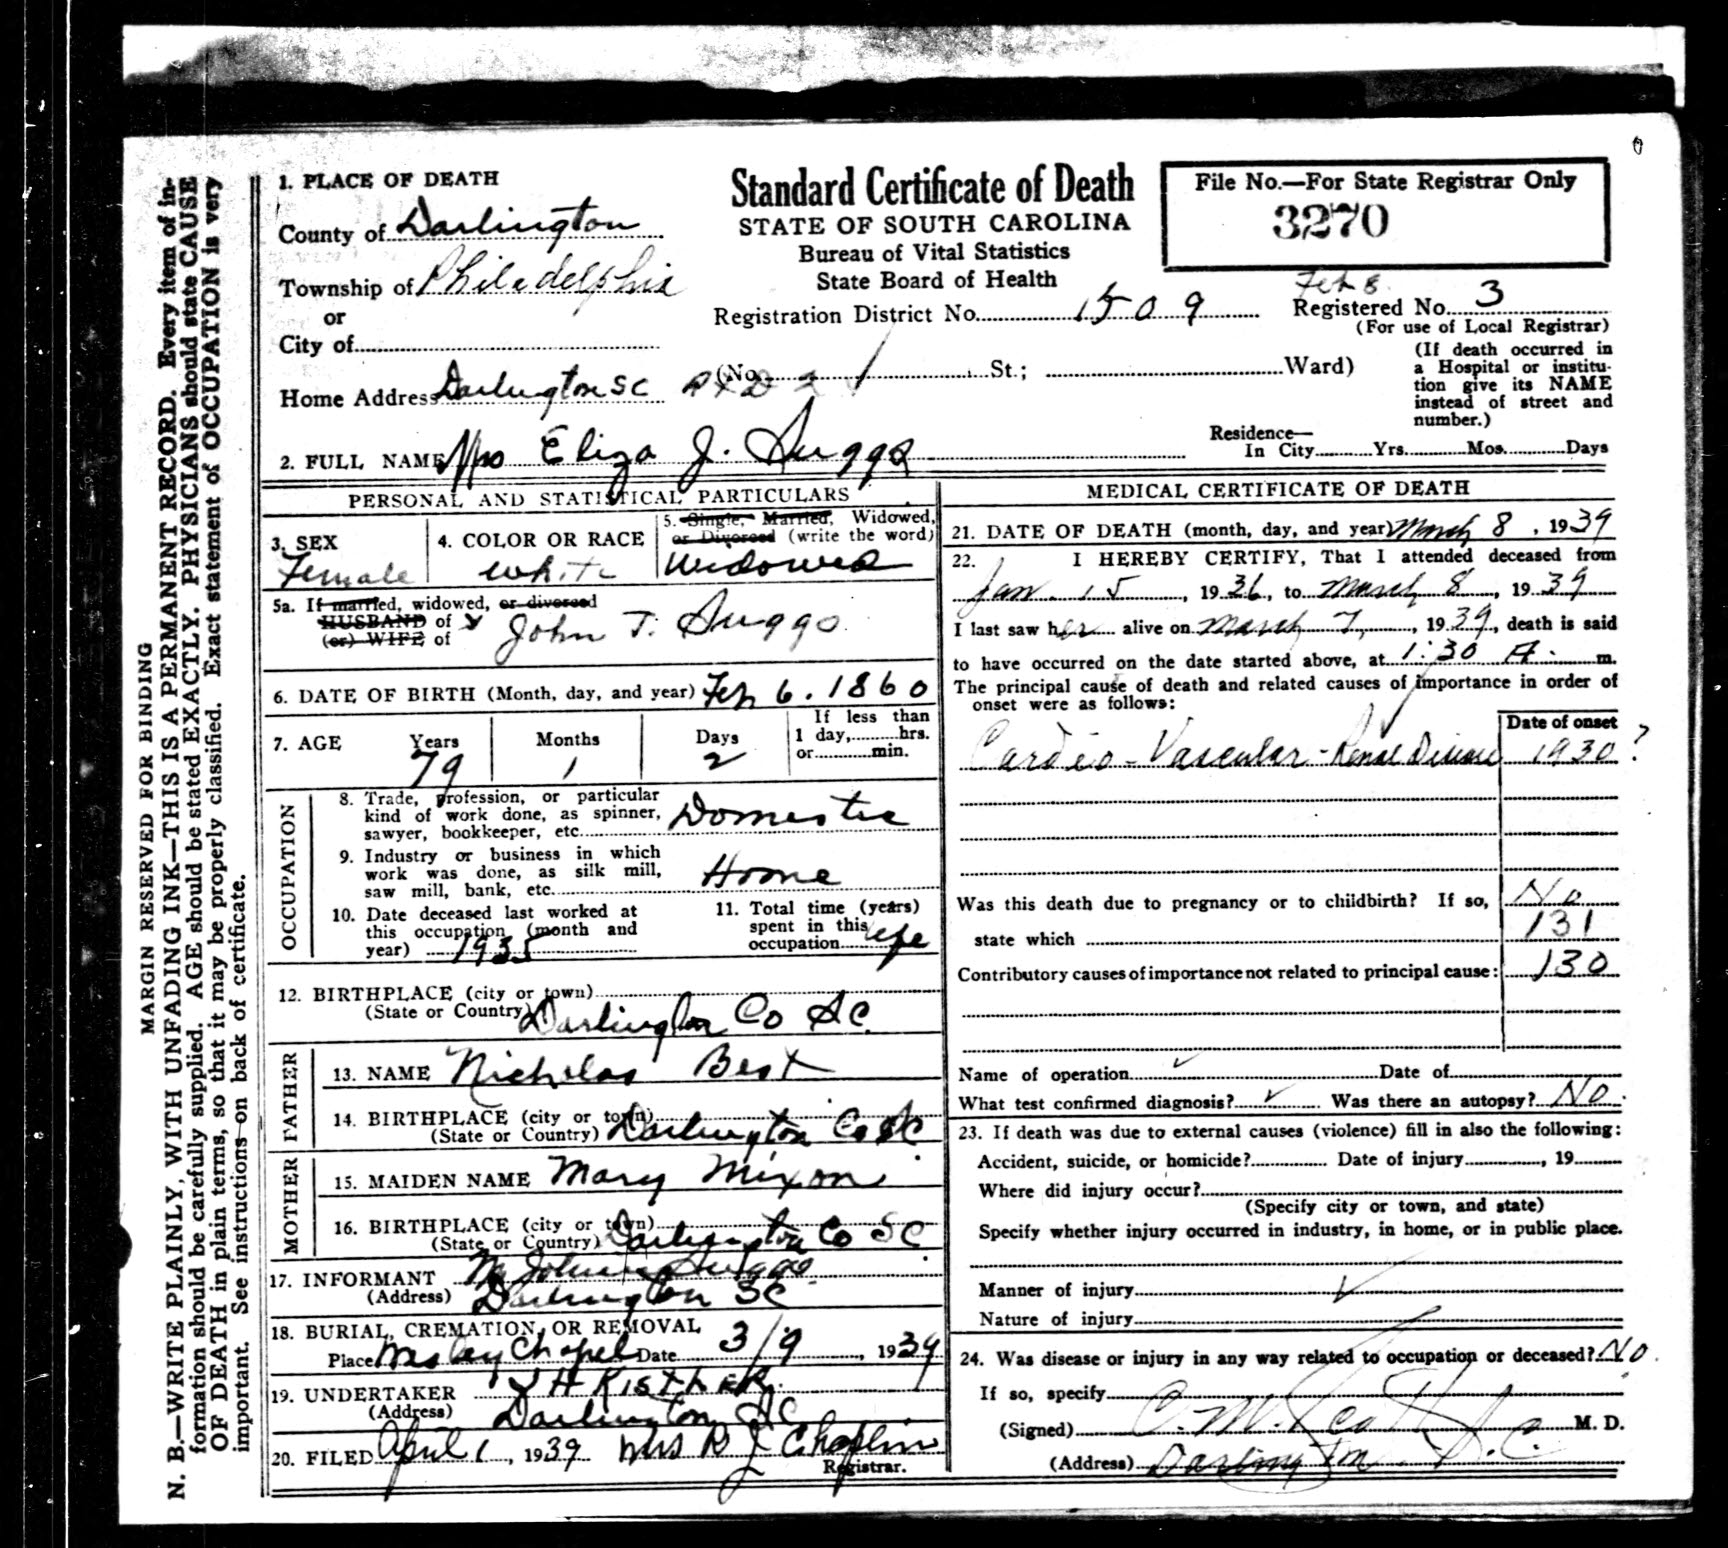 N. B.—WRITE PLAINLY, WITH UNFADING INK—THIS IS A PERMANENT RECORD. Every item of in-
formation should be carefully supplied. AGE should be stated EXACTLY. PHYSICIANS should state CAUSE
OF DEATH in plain terms, so that it may be properly classified. Exact statement of OCCUPATION is very
important. See instructions on back of certificate.
MARGIN RESERVED FOR BINDING
Standard Certificate of Death
STATE OF SOUTH CAROLINA
Bureau of Vital Statistics
State Board of Health
File No.—For State Registrar Only
3270
1. PLACE OF DEATH
County of Darlington
Township of Philadelphia
or
City of
Registration District No. 1509
Feb 8
Registered No. 3
(For use of Local Registrar)
Home Address Darlington SC RFD 2 (No. St.; Ward)
(If death occurred in
a Hospital or institu-
tion give its NAME
instead of street and
number.)
2. FULL NAME Mrs Eliza J. Suggs
Residence—
In City Yrs. Mos. Days
PERSONAL AND STATISTICAL PARTICULARS
3. SEX
Female
4. COLOR OR RACE
White
5. Single, Married, Widowed,
or Divorced (write the word)
Widowed
5a. If married, widowed, or divorced
HUSBAND of
(or) WIFE of
John T. Suggs
6. DATE OF BIRTH (Month, day, and year) Feb 6. 1860
7. AGE Years Months Days
79 1 2
If less than
1 day, hrs.
or min.
OCCUPATION
8. Trade, profession, or particular
kind of work done, as spinner,
sawyer, bookkeeper, etc. Domestic
9. Industry or business in which
work was done, as silk mill,
saw mill, bank, etc. Home
10. Date deceased last worked at
this occupation (month and
year) 1935
11. Total time (years)
spent in this
occupation life
12. BIRTHPLACE (city or town)
(State or Country) Darlington Co SC
FATHER
13. NAME Nicholas Best
14. BIRTHPLACE (city or town)
(State or Country) Darlington Co SC
MOTHER
15. MAIDEN NAME Mary Mixon
16. BIRTHPLACE (city or town)
(State or Country) Darlington Co SC
17. INFORMANT Suggs
(Address) Darlington SC
18. BURIAL, CREMATION, OR REMOVAL
Place Wesley Chapel Date 3/9, 1939
19. UNDERTAKER J H RISTHER
(Address) Darlington SC
20. FILED April 1, 1939 Mrs R J Chaplin
Registrar.
MEDICAL CERTIFICATE OF DEATH
21. DATE OF DEATH (month, day, and year) March 8, 1939
22. I HEREBY CERTIFY, That I attended deceased from
Jan. 15, 1936, to March 8, 1939
I last saw her alive on March 7, 1939, death is said
to have occurred on the date started above, at 1:30 A. m.
The principal cause of death and related causes of importance in order of
onset were as follows:
Date of onset
Cardio-Vascular-Renal Disease 1930?
Was this death due to pregnancy or to childbirth? If so, No
131
state which
Contributory causes of importance not related to principal cause: 130
Name of operation Date of
What test confirmed diagnosis? Was there an autopsy? No
23. If death was due to external causes (violence) fill in also the following:
Accident, suicide, or homicide? Date of injury, 19
Where did injury occur?
(Specify city or town, and state)
Specify whether injury occurred in industry, in home, or in public place.
Manner of injury
Nature of injury
24. Was disease or injury in any way related to occupation or deceased? No.
If so, specify
(Signed) C. M. M. D.
(Address) Darlington, S.C.